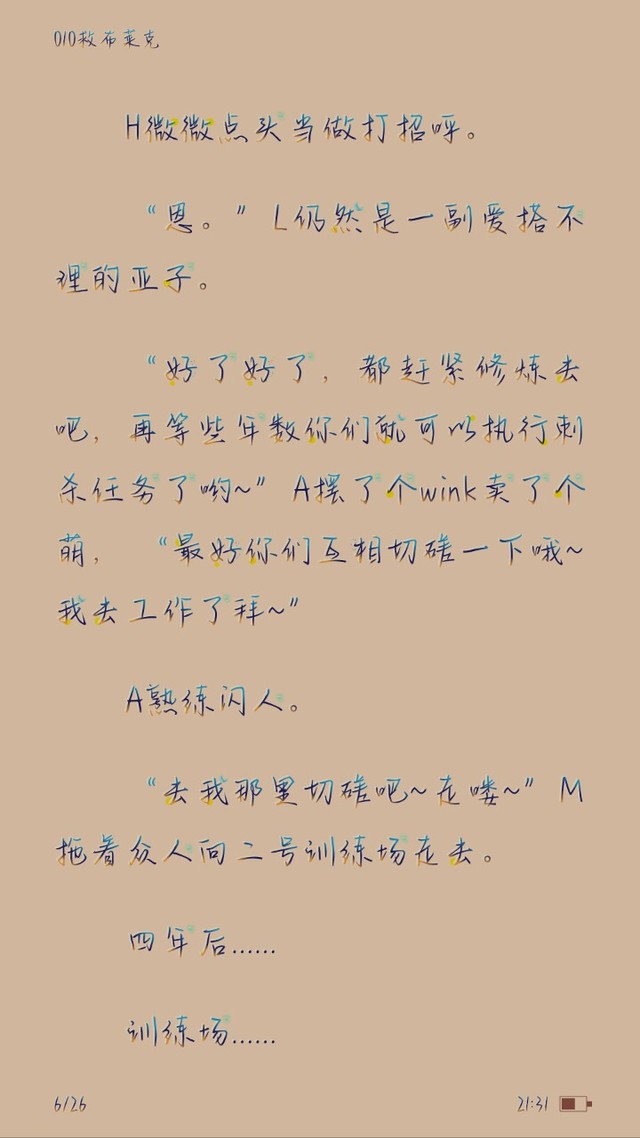 010救布莱克
H微微点头当做打招呼。
“恩。”L仍然是一副爱搭不
理的亚子。
“好了好了，都赶紧修炼去
吧，再等些年数你们就可以执行刺
杀任务了哟~”A摆了个wink卖了个
萌，“最好你们互相切磋一下哦~
我去工作了拜~”
A熟练闪人。
“去我那里切磋吧~走喽~”M
拖着众人向二号训练场走去。
四年后……
训练场……
6/26
21:31